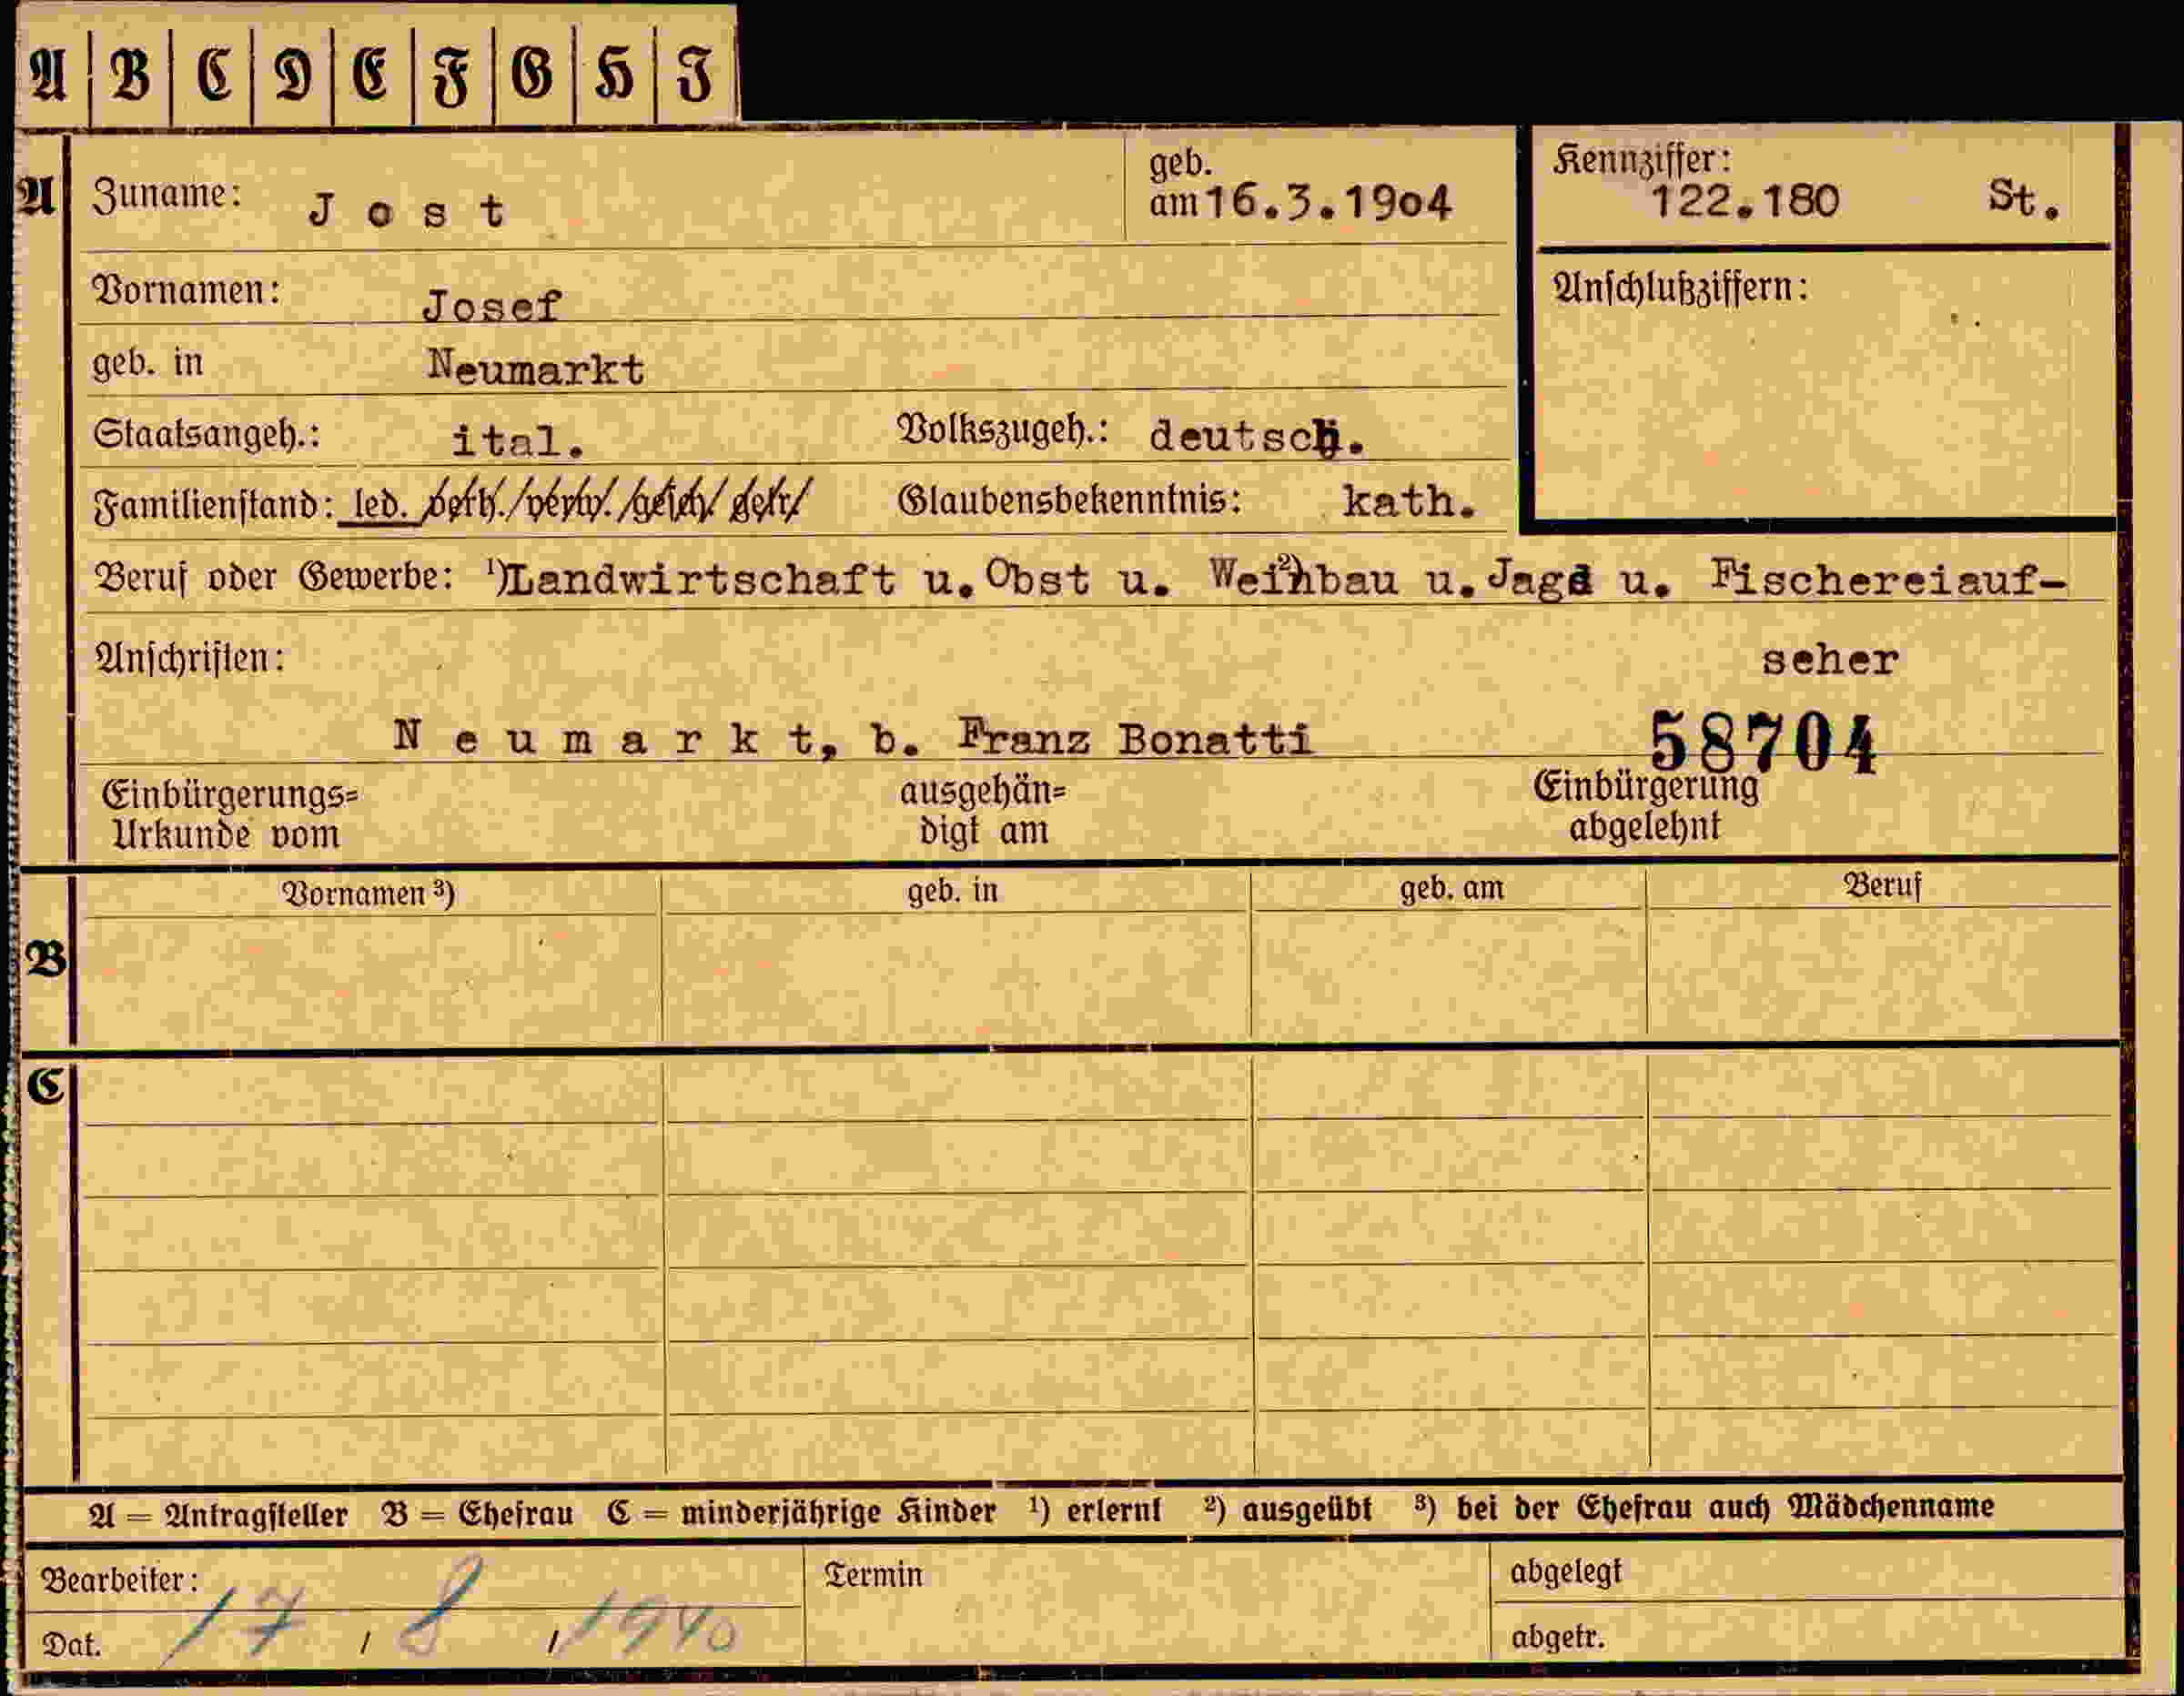 A B C D E F G H I
A Zuname: Jost geb. am 16.3.1904 Kennziffer: 122.180 St.
Vornamen: Josef Anschlußziffern:
geb. in Neumarkt
Staatsangeh.: ital. Volkszugeh.: deutsch.
Familienstand: led. verh./verw./gesch/ getr/ Glaubensbekenntnis: kath.
Beruf oder Gewerbe: ¹)Landwirtschaft u. Obst u. Weinbau ²) u. Jagd u. Fischereiauf-
Anschriften: seher
Neumarkt, b. Franz Bonatti 58704
Einbürgerungs= ausgehän= Einbürgerung
Urkunde vom digt am abgelehnt
Vornamen ³) geb. in geb. am Beruf
B
C
A = Antragsteller B = Ehefrau C = minderjährige Kinder ¹) erlernt ²) ausgeübt ³) bei der Ehefrau auch Mädchenname
Bearbeiter: Termin abgelegt
Dat. 17 / 8 / 1940 abgetr.